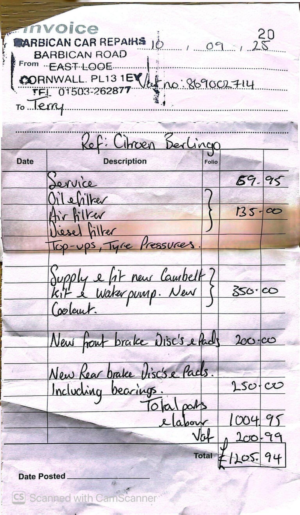 Invoice
BARBICAN CAR REPAIRS
BARBICAN ROAD
From EAST LOOE
CORNWALL PL13 1EY
TEL 01503-262877
20
10 , 09 , 25
Vat no: 869002714
To Terry
Ref: Citroen Berlingo
Date Description Folio
Service 69.95
Oil & filter
Air filter 135-00
Diesel filter
Top-ups, Tyre Pressures.
Supply & fit new Cambelt
Kit & water pump. New 350-00
Coolant.
New front brake Disc's & Pads 200-00
New Rear brake Disc's & Pads.
Including bearings. 250-00
Total parts
& labour 1004.95
Vat 200-99
Total £1205.94
Date Posted
CS Scanned with CamScanner